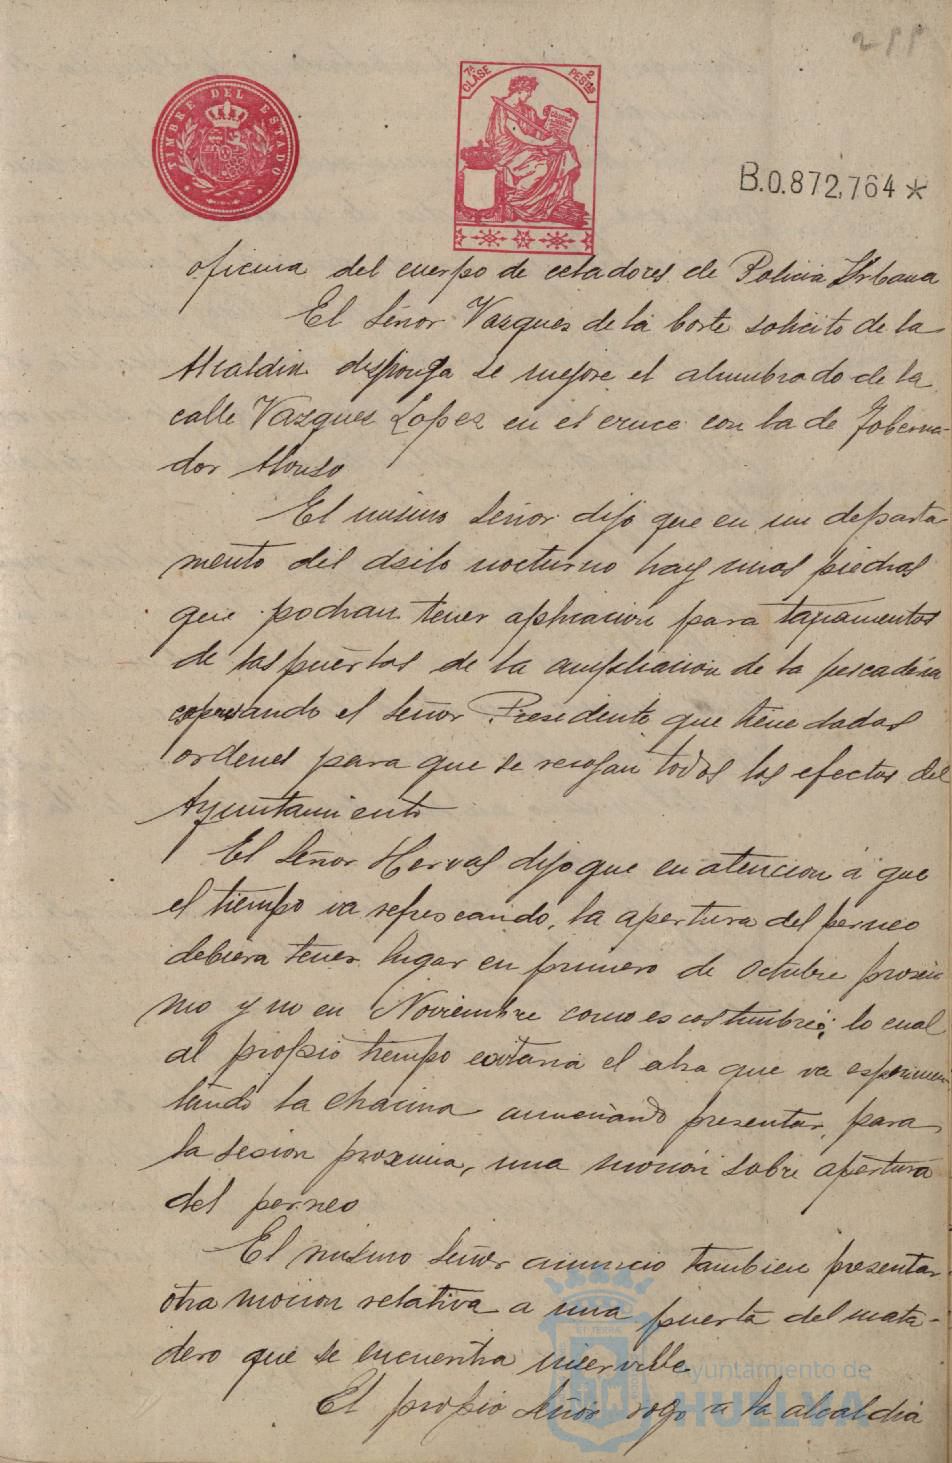 299
TIMBRE DEL ESTADO
7ª CLASE 2 PESTAS
B.0.872,764 *
oficina del cuerpo de celadores de Policia Urbana
El Señor Vazques de la Corte solicito de la
Alcaldia disponga se mejore el alumbrado de la
calle Vazquez Lopez en el cruce con la de Goberna-
dor Alonso
El mismo Señor dijo que en un departa
mento del asilo nocturno hay unas piedras
que podrian tener aplicación para tapamentos
de las puertas de la ampliacion de la pescaderia
expresando el Señor Presidente que tiene dadas
ordenes para que se recojan todos los efectos del
Ayuntamiento
El Señor Hervas dijo que en atencion á que
el tiempo va refrescando, la apertura del perneo
debiera tener lugar en primero de Octubre proxi
mo y no en Noviembre como es costumbre; lo cual
al propio tiempo evitaria el alza que va esperimen
tando la chacina anunciando presentar, para
la sesion proxima, una mocion sobre apertura
del perneo
El mismo Señor anuncio tambien presentar
otra mocion relativa a una puerta del mata-
dero que se encuentra inservible
El propio Señor rogo a la alcaldia
Ayuntamiento de
HUELVA